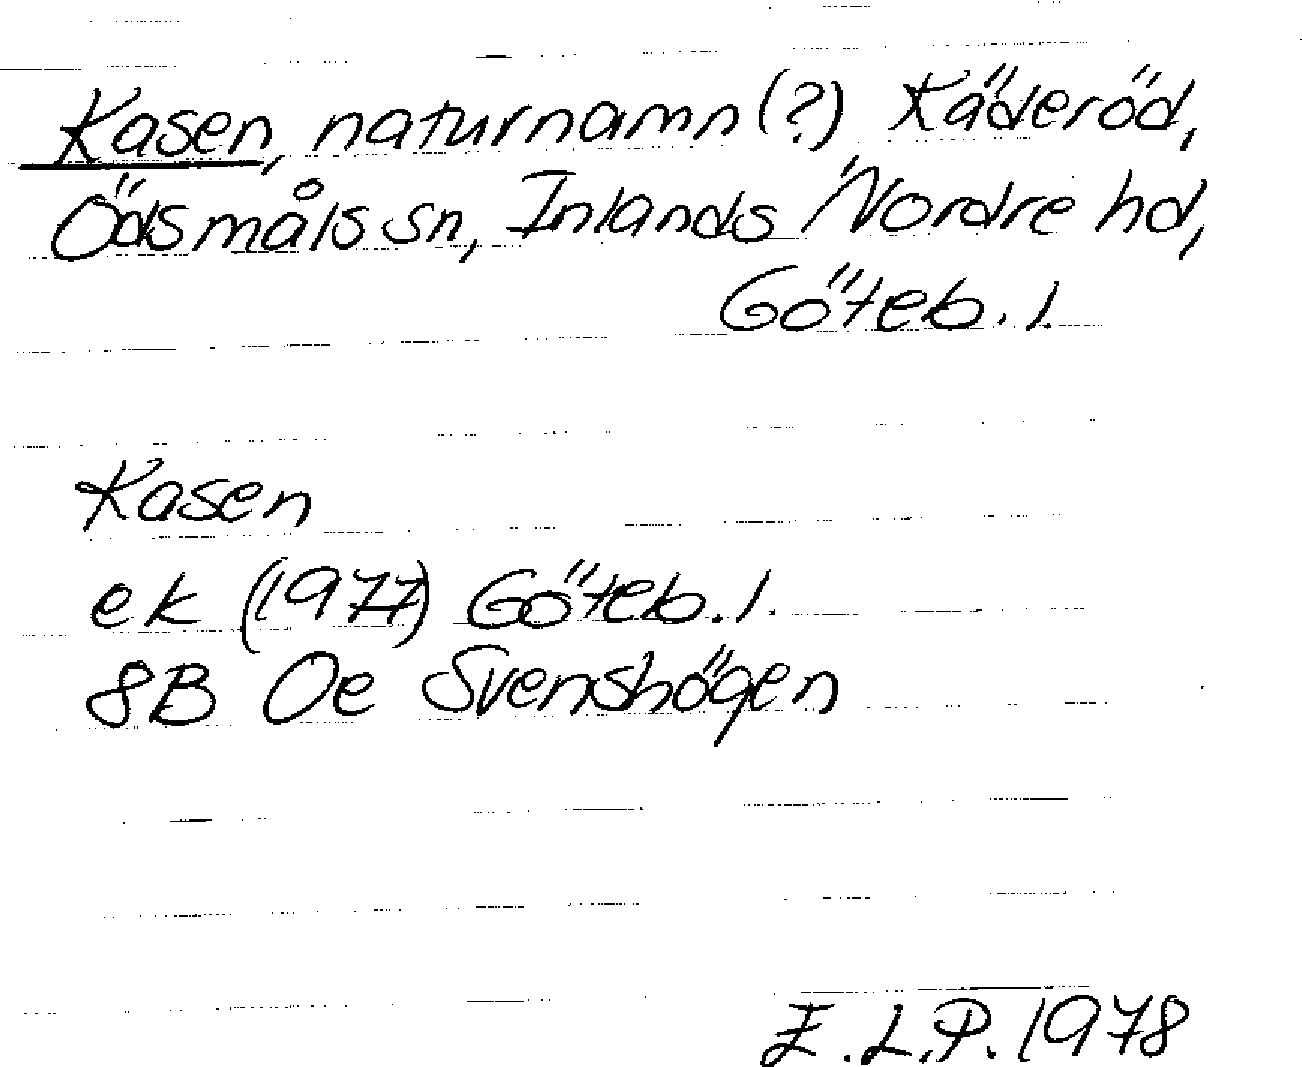 Kasen, naturnamn(?) Käderöd,
Ödsmåls sn, Inlands Nordre hd,
Göteb. l.
Kasen
ek (1977) Göteb. l.
8B Oe Svenshögen
E. L. P. 1978